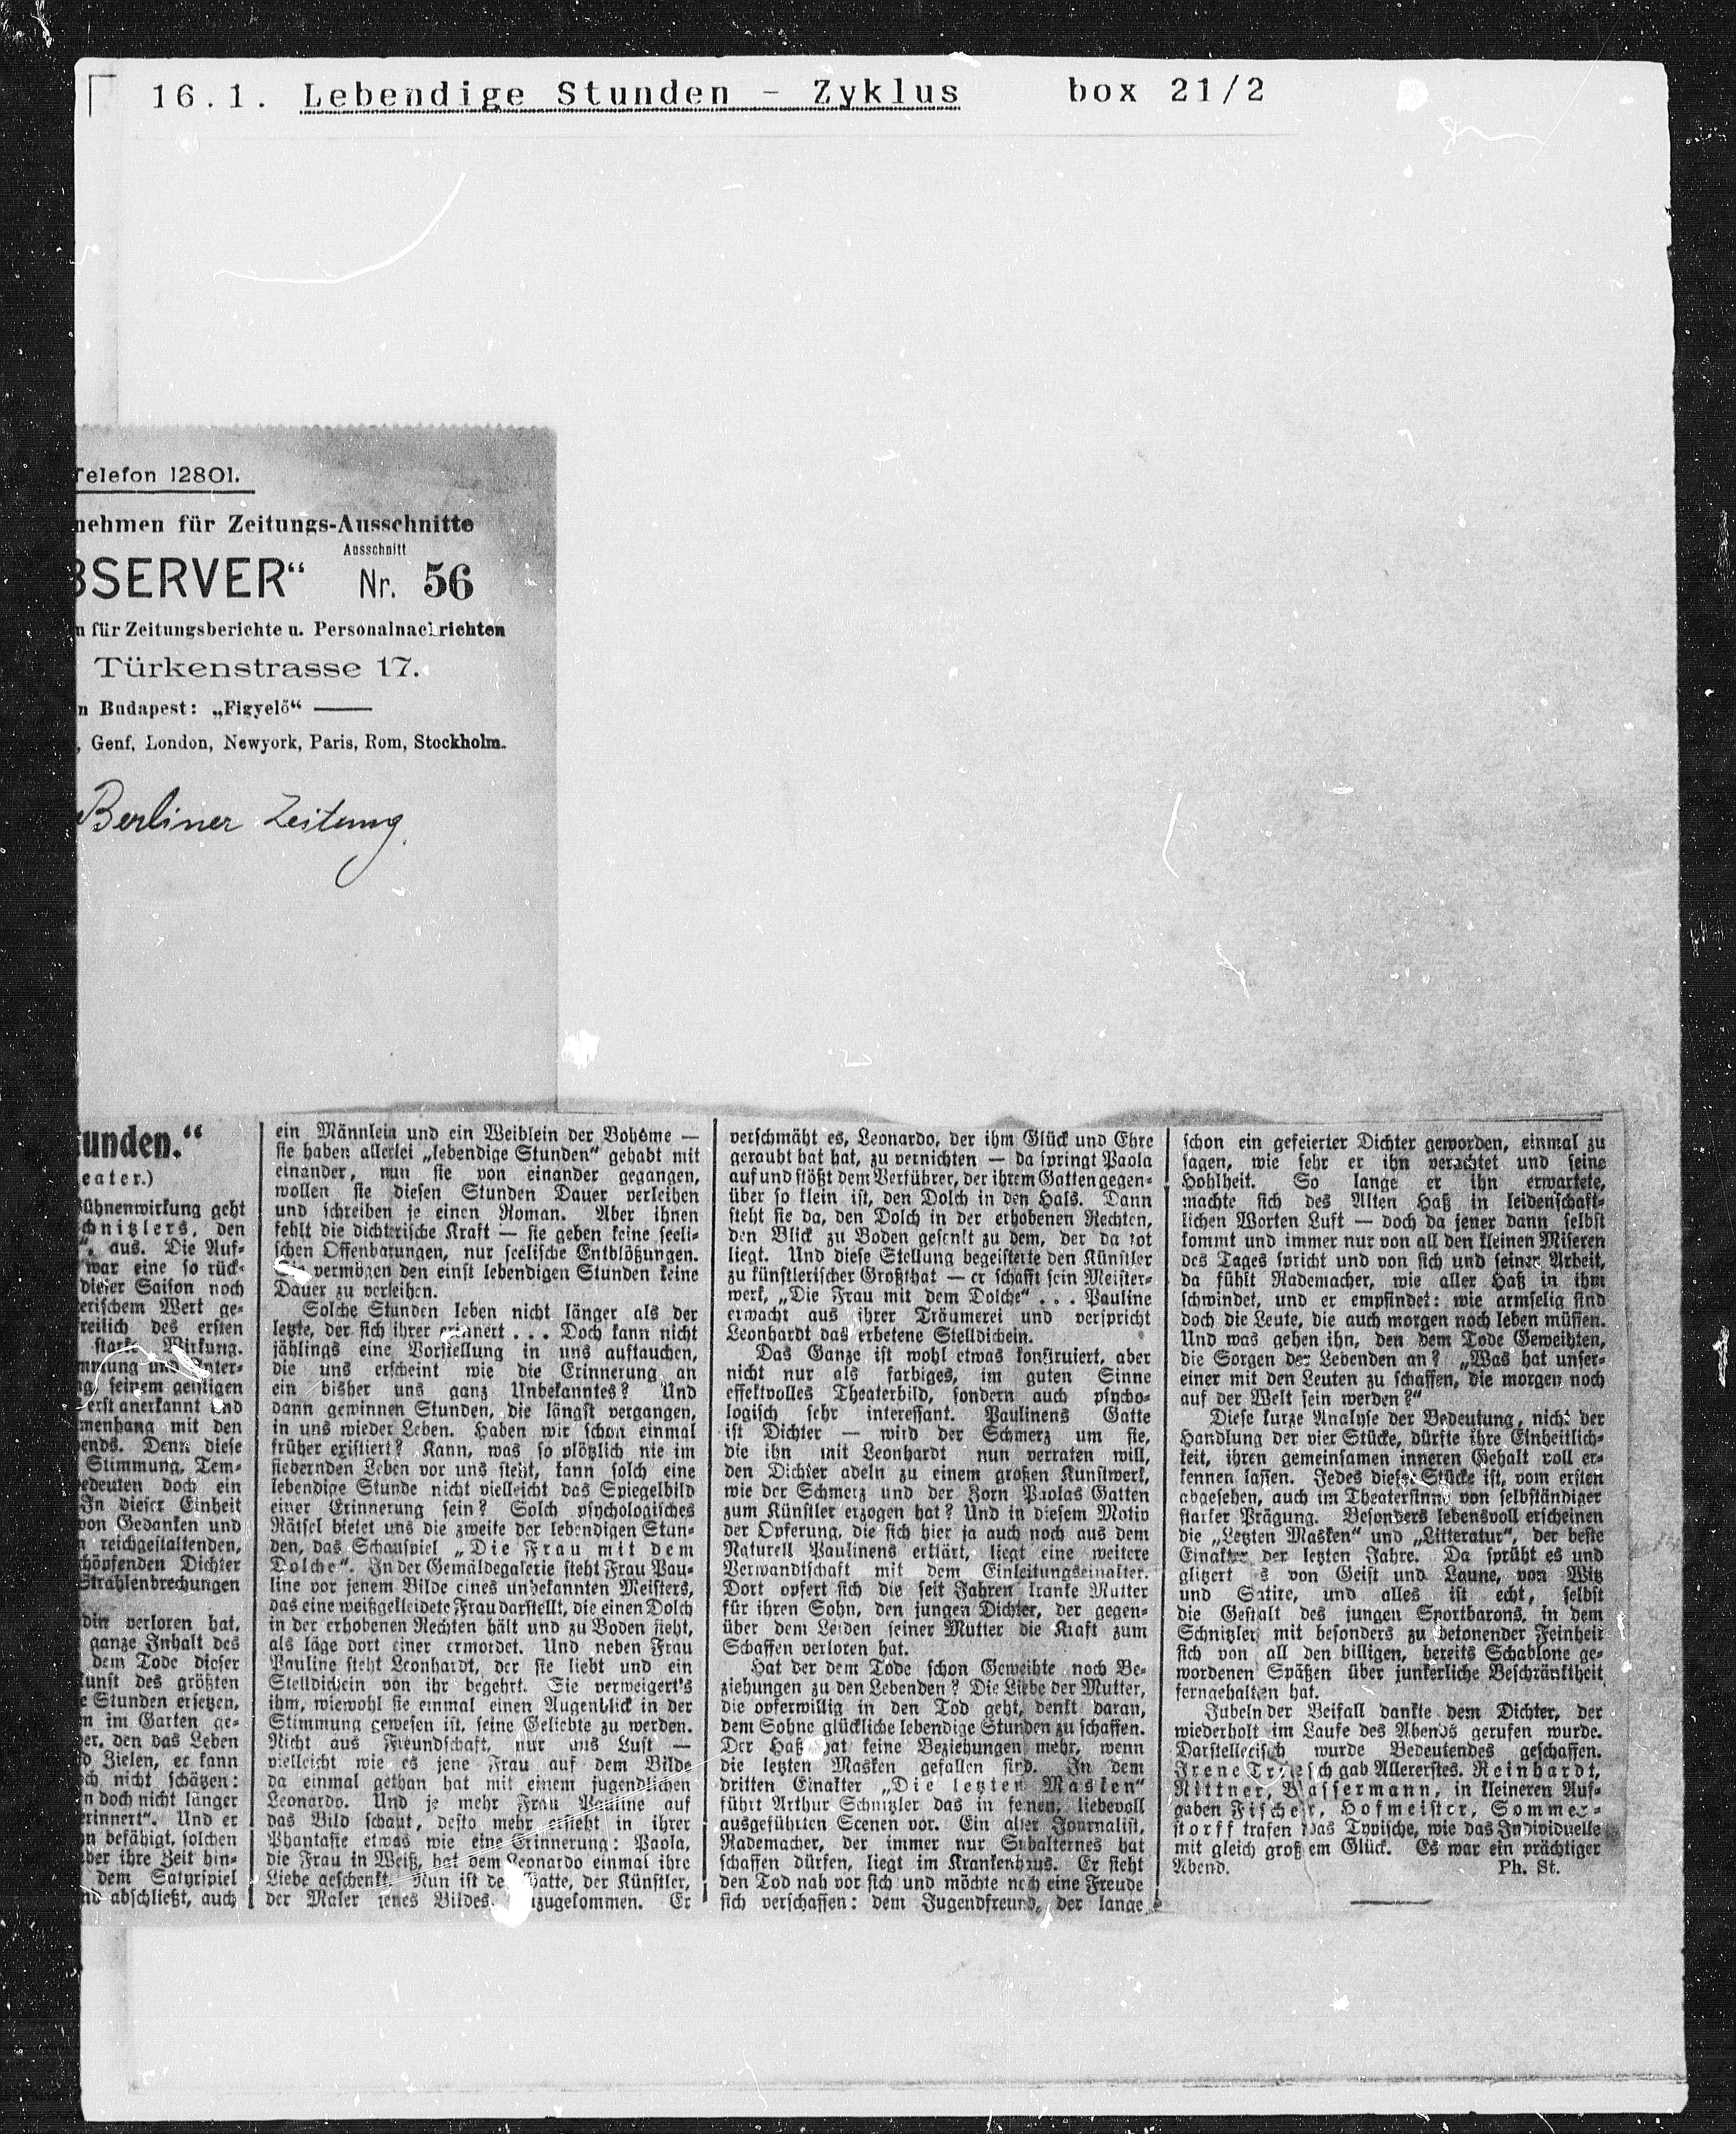 16.1. Lebendige Stunden - Zyklus box 21/2
Telefon 12801.
nehmen für Zeitungs-Ausschnitte
Ausschnitt
BSERVER“ Nr. 56
n für Zeitungsberichte u. Personalnachrichten
Türkenstrasse 17.
n Budapest: „Figyelö“ ——
, Genf, London, Newyork, Paris, Rom, Stockholm.
Berliner Zeitung.
tunden.“
eater.)
Bühnenwirkung geht
chnitzlers, den
“, aus. Die Auf-
war eine so rück-
dieser Saison noch
erischem Wert ge-
reilich des ersten
starke Wirkung.
mmung und Inter-
ng seinem geistigen
erst anerkannt und
menhang mit den
ends. Denn diese
Stimmung, Tem-
bedeuten doch ein
In dieser Einheit
von Gedanken und
n reichgestaltenden,
chöpfenden Dichter
Strahlenbrechungen
din verloren hat,
ganze Inhalt des
dem Tode dieser
Kunst des größten
e Stunden ersetzen,
n im Garten ge-
er, den das Leben
d Zielen, er kann
ch nicht schätzen:
n doch nicht länger
erinnert“. Und er
n befähigt, solchen
ber ihre Zeit hin-
dem Satyrspiel
nd abschließt, auch
ein Männlein und ein Weiblein der Bohême —
sie haben allerlei „lebendige Stunden“ gehabt mit
einander, nun sie von einander gegangen,
wollen sie diesen Stunden Dauer verleihen
und schreiben je einen Roman. Aber ihnen
fehlt die dichterische Kraft — sie geben keine seeli-
schen Offenbarungen, nur seelische Entblößungen.
Sie vermögen den einst lebendigen Stunden keine
Dauer zu verleihen.
Solche Stunden leben nicht länger als der
letzte, der sich ihrer erinnert . . . Doch kann nicht
jählings eine Vorstellung in uns auftauchen,
die uns erscheint wie die Erinnerung an
ein bisher uns ganz Unbekanntes? Und
dann gewinnen Stunden, die längst vergangen,
in uns wieder Leben. Haben wir schon einmal
früher existiert? Kann, was so plötzlich nie im
fiebernden Leben vor uns steht, kann solch eine
lebendige Stunde nicht vielleicht das Spiegelbild
einer Erinnerung sein? Solch psychologisches
Rätsel bietet uns die zweite der lebendigen Stun-
den, das Schauspiel „Die Frau mit dem
Dolche“. In der Gemäldegalerie steht Frau Pau-
line vor jenem Bilde eines unbekannten Meisters,
das eine weißgekleidete Frau darstellt, die einen Dolch
in der erhobenen Rechten hält und zu Boden sieht,
als läge dort einer ermordet. Und neben Frau
Pauline steht Leonhardt, der sie liebt und ein
Stelldichein von ihr begehrt. Sie verweigert's
ihm, wiewohl sie einmal einen Augenblick in der
Stimmung gewesen ist, seine Geliebte zu werden.
Nicht aus Freundschaft, nur aus Lust —
vielleicht wie es jene Frau auf dem Bilde
da einmal gethan hat mit einem jugendlichen
Leonardo. Und je mehr Frau Pauline auf
das Bild schaut, desto mehr ersteht in ihrer
Phantasie etwas wie eine Erinnerung: Paola,
die Frau in Weiß, hat dem Leonardo einmal ihre
Liebe geschenkt. Nun ist der Gatte, der Künstler,
der Maler jenes Bildes. zugekommen. Er
verschmäht es, Leonardo, der ihm Glück und Ehre
geraubt hat hat, zu vernichten — da springt Paola
auf und stößt dem Verführer, der ihrem Gatten gegen-
über so klein ist, den Dolch in den Hals. Dann
steht sie da, den Dolch in der erhobenen Rechten,
den Blick zu Boden gesenkt zu dem, der da tot
liegt. Und diese Stellung begeisterte den Künstler
zu künstlerischer Großthat — er schafft sein Meister-
werk, „Die Frau mit dem Dolche“ . . . Pauline
erwacht aus ihrer Träumerei und verspricht
Leonhardt das erbetene Stelldichein.
Das Ganze ist wohl etwas konstruiert, aber
nicht nur als farbiges, im guten Sinne
effektvolles Theaterbild, sondern auch psycho-
logisch sehr interessant. Paulinens Gatte
ist Dichter — wird der Schmerz um sie,
die ihn mit Leonhardt nun verraten will,
den Dichter adeln zu einem großen Kunstwerk,
wie der Schmerz und der Zorn Paolas Gatten
zum Künstler erzogen hat? Und in diesem Motiv
der Opferung, die sich hier ja auch noch aus dem
Naturell Paulinens erklärt, liegt eine weitere
Verwandtschaft mit dem Einleitungseinakter.
Dort opfert sich die seit Jahren kranke Mutter
für ihren Sohn, den jungen Dichter, der gegen-
über dem Leiden seiner Mutter die Kraft zum
Schaffen verloren hat.
Hat der dem Tode schon Geweihte noch Be-
ziehungen zu den Lebenden? Die Liebe der Mutter,
die opferwillig in den Tod geht, denkt daran,
dem Sohne glückliche lebendige Stunden zu schaffen.
Der Haß hat keine Beziehungen mehr, wenn
die letzten Masken gefallen sind. In dem
dritten Einakter „Die letzten Masken“
führt Arthur Schnitzler das in feinen, liebevoll
ausgeführten Scenen vor. Ein alter Journalist,
Rademacher, der immer nur Subalternes hat
schaffen dürfen, liegt im Krankenhaus. Er sieht
den Tod nah vor sich und möchte noch eine Freude
sich verschaffen: dem Jugendfreund, der lange
schon ein gefeierter Dichter geworden, einmal zu
sagen, wie sehr er ihn verachtet und seine
Hohlheit. So lange er ihn erwartete,
machte sich des Alten Haß in leidenschaft-
lichen Worten Luft — doch da jener dann selbst
kommt und immer nur von all den kleinen Miseren
des Tages spricht und von sich und seiner Arbeit,
da fühlt Rademacher, wie aller Haß in ihm
schwindet, und er empfindet: wie armselig sind
doch die Leute, die auch morgen noch leben müssen.
Und was gehen ihn, den dem Tode Geweihten,
die Sorgen der Lebenden an? „Was hat unser-
einer mit den Leuten zu schaffen, die morgen noch
auf der Welt sein werden?“
Diese kurze Analyse der Bedeutung, nicht der
Handlung der vier Stücke, dürfte ihre Einheitlich-
keit, ihren gemeinsamen inneren Gehalt voll er-
kennen lassen. Jedes dieser Stücke ist, vom ersten
abgesehen, auch im Theatersinne von selbständiger
starker Prägung. Besonders lebensvoll erscheinen
die „Letzten Masken“ und „Litteratur“, der beste
Einakter der letzten Jahre. Da sprüht es und
glitzert s von Geist und Laune, von Witz
und Satire, und alles ist echt, selbst
die Gestalt des jungen Sportbarons, in dem
Schnitzler mit besonders zu betonender Feinheit
sich von all den billigen, bereits Schablone ge-
wordenen Späßen über junkerliche Beschränktheit
ferngehalten hat.
Jubelnder Beifall dankte dem Dichter, der
wiederholt im Laufe des Abends gerufen wurde.
Darstellerisch wurde Bedeutendes geschaffen.
Irene Triesch gab Allererstes. Reinhardt,
Rittner, Bassermann, in kleineren Auf-
gaben Fischer, Hofmeister, Sommer-
storff trafen das Typische, wie das Individuelle
mit gleich großem Glück. Es war ein prächtiger
Abend. Ph. St.